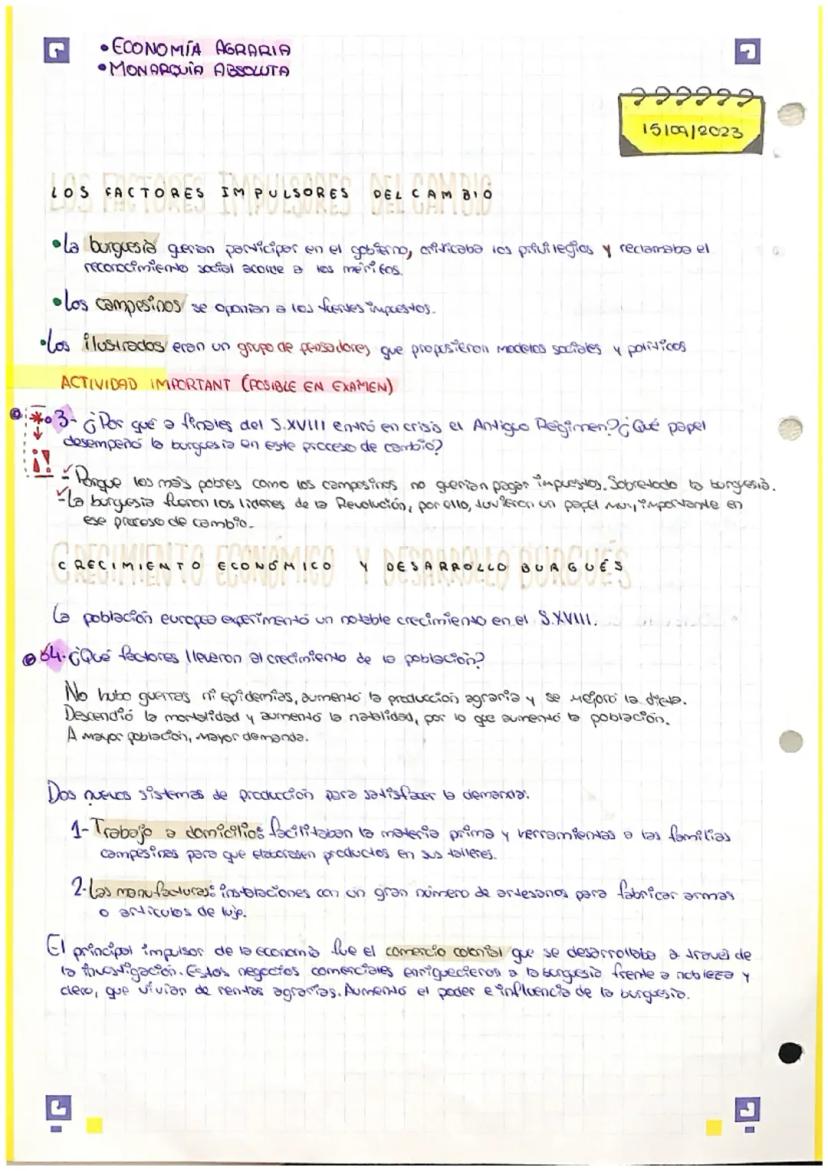 •ECONOMÍA AGRARIA
•MONARQUÍA ABSOLUTA
15/09/2023
LOS FACTORES IMPULSORES DEL CAMBIO
•La burguesía querian participar en el gobierno, criticaba los privilegios y reclamaba el
reconocimiento social acorde a los méritos.
•Los campesinos se oponian a los fuertes impuestos.
•Los ilustrados eran un grupo de pensadores, que propusieron modelos sociales y políticos
ACTIVIDAD IMPORTANT (POSIBLE EN EXAMEN)
3- ¿Por qué a finales del S.XVIII entró en crisis el Antiguo Regimen? ¿Qué papel
desempeñó la burguesia en este proceso de cambio?
¡!
- Porque los más pobres como los campesinos no querian pagar impuestos. Sobretodo la burguesía.
-La burguesia fueron los lideres de la Revolución, por ello, tuvieron un papel muy importante en
ese proceso de cambio.
CRECIMIENTO ECONÓMICO Y DESARROLLO BURGUÉS
La población europea experimentó un notable crecimiento en el S.XVIII.
4. ¿Qué factores llevaron al crecimiento de la población?
No hubo guerras ni epidemias, aumentó la producción agraria y se mejoró la dieta.
Descendió la mortalidad y aumentó la natalidad, por lo que aumentó la población.
A mayor población, mayor demanda.
Dos nuevos sistemas de producción para satisfacer la demanda:
1-Trabajo a domicilio: facilitaban la materia prima y herramientas a las familias
campesinas para que elaborasen productos en sus talleres.
2-Las manufacturas: instalaciones con un gran número de artesanos para fabricar armas
o artículos de lujo.
El principal impulsor de la economía fue el comercio colonial que se desarrollaba a travel de
la investigación. Estos negocios comerciales enriquecieros a la burguesía frente a nobleza y
clero, que vivían de rentas agrarias. Aumentó el poder e influencia de la burguesía.